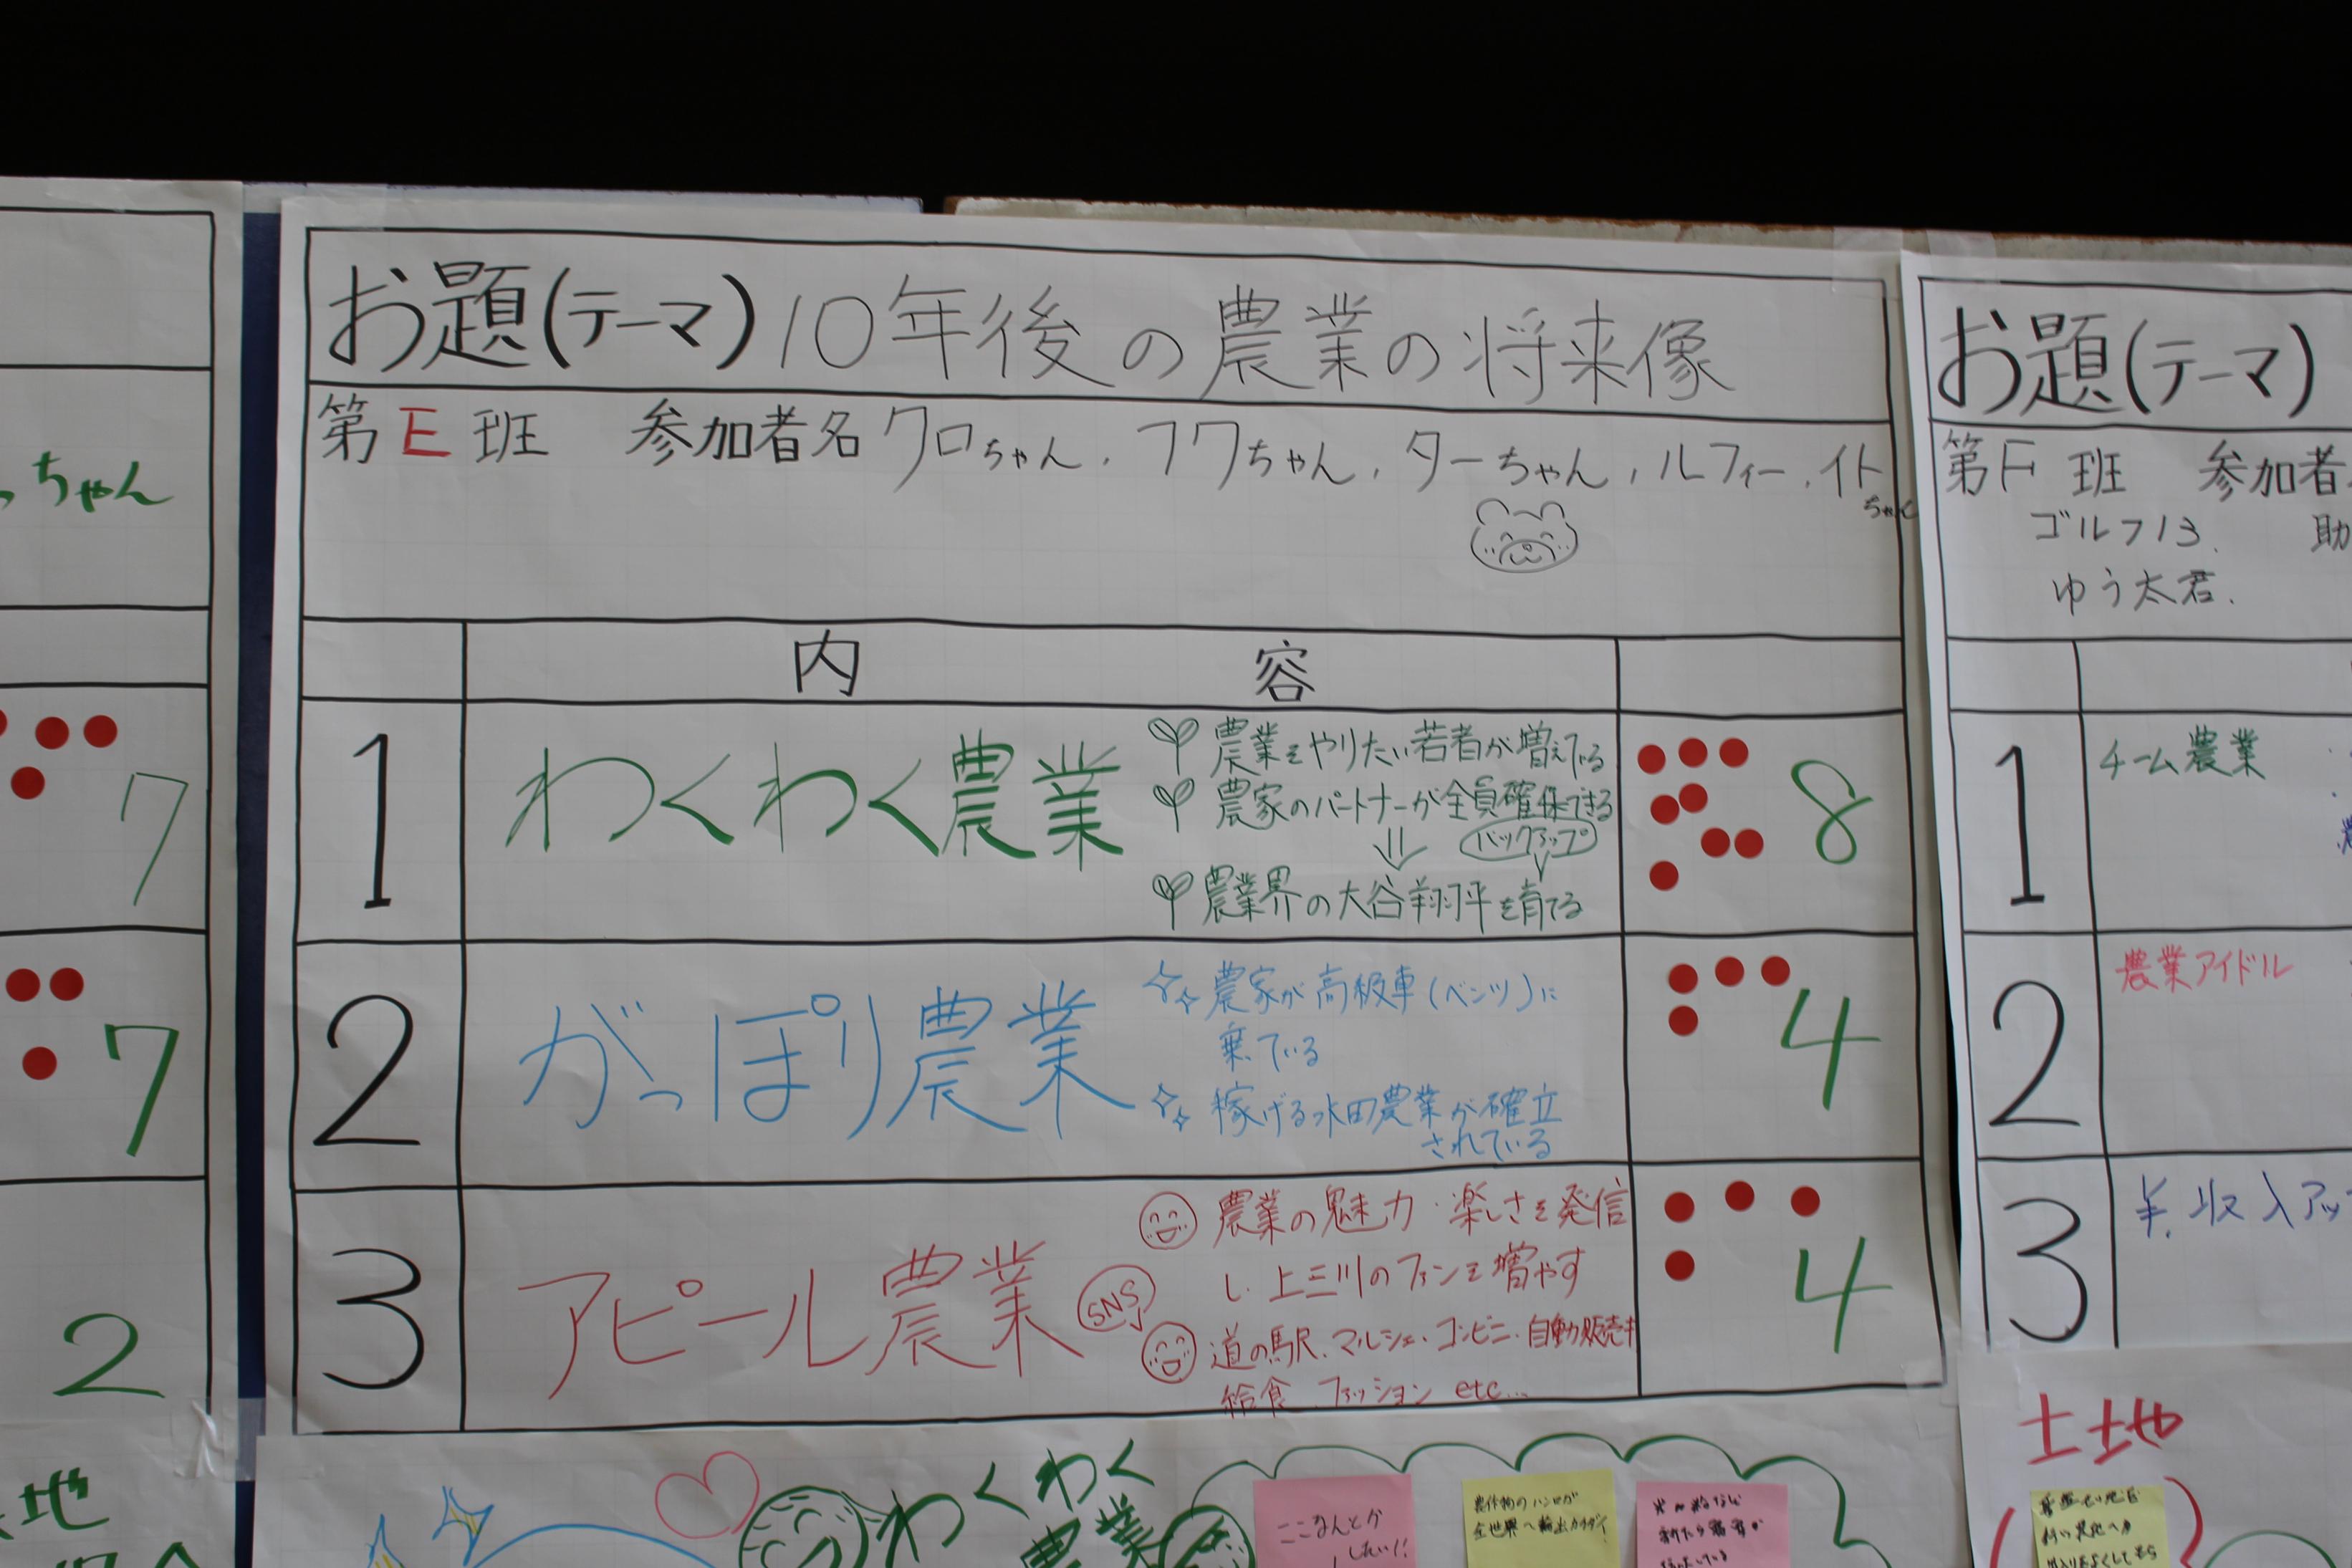 ちゃん
7
7
2
地
お題(テーマ) 10年後の農業の将来像
第E班 参加者名 クロちゃん, フワちゃん, ターちゃん, ルフィー, イトちゃん
内 容
1 わくわく農業
農業をやりたい若者が増えている
農家のパートナーが全員確保できる
⇓ バックアップ
農業界の大谷翔平を育てる
8
2 がっぽり農業
農家が高級車(ベンツ)に
乗っている
稼げる水田農業が確立
されている
4
3 アピール農業 SNS
農業の魅力・楽しさを発信
し、上三川のファンを増やす
道の駅、マルシェ、コンビニ、自動販売キ
給食、ファッション etc...
4
わくわく
農業
ここなんとか
したい!!
農作物のハンロが
全世界へ輸出カクダイ
お題(テーマ)
第F班 参加者
ゴルフ13. 助
ゆう太君.
1 チーム農業
2 農業アイドル
3 ¥.収入アッ
土地